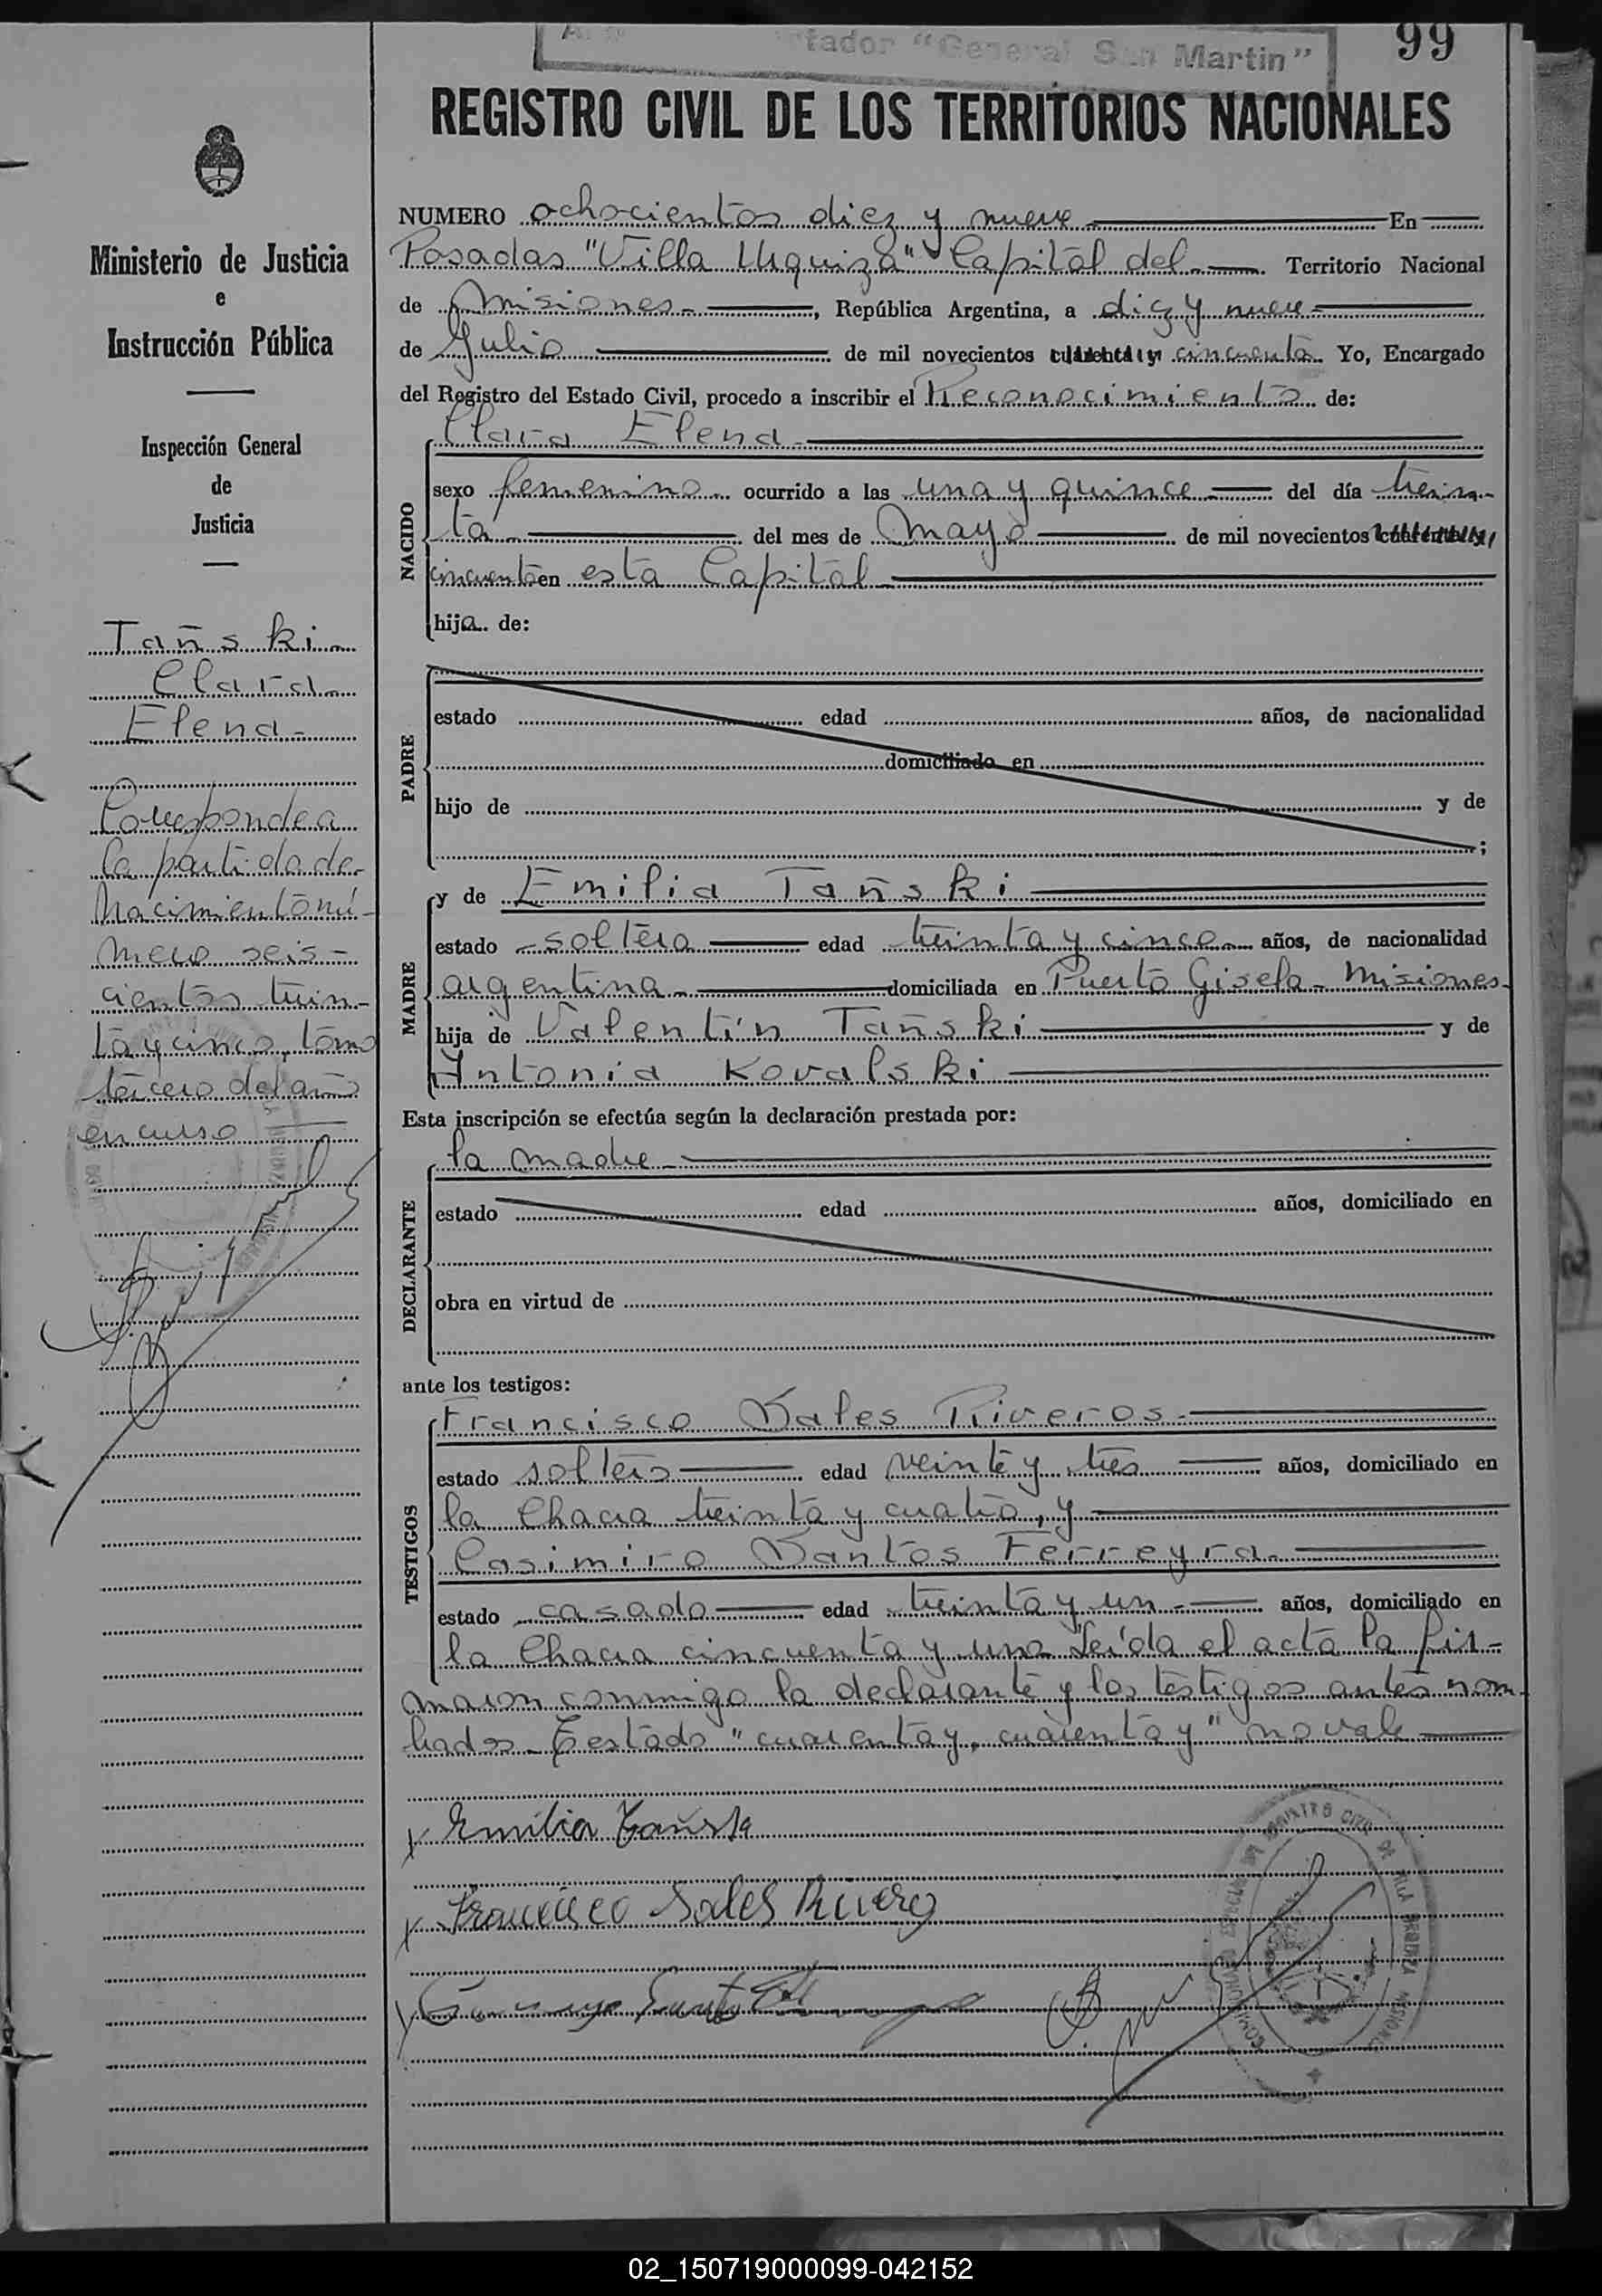 "General San Martin"
99
REGISTRO CIVIL DE LOS TERRITORIOS NACIONALES
Ministerio de Justicia
e
Instrucción Pública
Inspección General
de
Justicia
Tañski
Clara
Elena
Corresponde a
la partida de
Nacimiento nú-
mero seis-
cientos trein-
ta y cinco, tomo
tercero del año
en curso
NUMERO ochocientos diez y nueve En
Posadas "Villa Urquiza" Capital del Territorio Nacional
de Misiones, República Argentina, a diez y nueve
de Julio de mil novecientos cuarenta y cincuenta Yo, Encargado
del Registro del Estado Civil, procedo a inscribir el Reconocimiento de:
Clara Elena
NACIDO
sexo femenino ocurrido a las una y quince del día trein-
ta del mes de Mayo de mil novecientos cuarenta y
cincuenta en esta Capital
hija de:
PADRE
estado edad años, de nacionalidad
domiciliado en
hijo de y de
;
MADRE
y de Emilia Tañski
estado soltera edad treinta y cinco años, de nacionalidad
argentina domiciliada en Puerto Gisela - Misiones-
hija de Valentín Tañski y de
Antonia Kovalski
Esta inscripción se efectúa según la declaración prestada por:
DECLARANTE
la madre
estado edad años, domiciliado en
obra en virtud de
ante los testigos:
TESTIGOS
Francisco Sales Riveros
estado soltero edad veinte y tres años, domiciliado en
la Chacra treinta y cuatro, y
Casimiro Santos Ferreyra
estado casado edad treinta y un años, domiciliado en
la Chacra cincuenta y una Leída el acta la fir-
maron conmigo la declarante y los testigos antes nom-
brados. Testado "cuarenta y, cuarenta y" no vale
Emilia
Francisco Sales Rivero
02_150719000099-042152